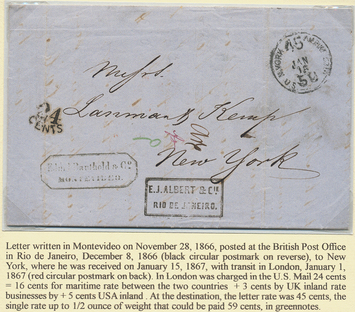 Messrs.
Lanman & Kemp
New York
24
CENTS
45
JAN
16
50
MONTEVIDEO.
E.J. ALBERT & Cie
RIO DE JANEIRO.
Letter written in Montevideo on November 28, 1866, posted at the British Post Office
in Rio de Janeiro, December 8, 1866 (black circular postmark on reverse), to New
York, where he was received on January 15, 1867, with transit in London, January 1,
1867 (red circular postmark on back). In London was charged in the U.S. Mail 24 cents
= 16 cents for maritime rate between the two countries + 3 cents by UK inland rate
businesses by + 5 cents USA inland . At the destination, the letter rate was 45 cents, the
single rate up to 1/2 ounce of weight that could be paid 59 cents, in greennotes.